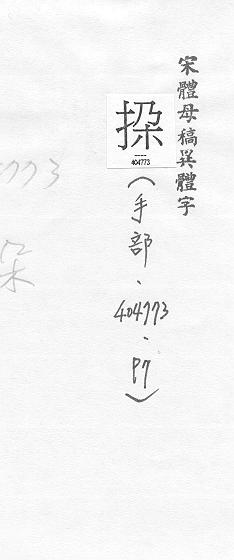 宋體母稿異體字
挆
404773
(手部、404773、P7)
773
朵